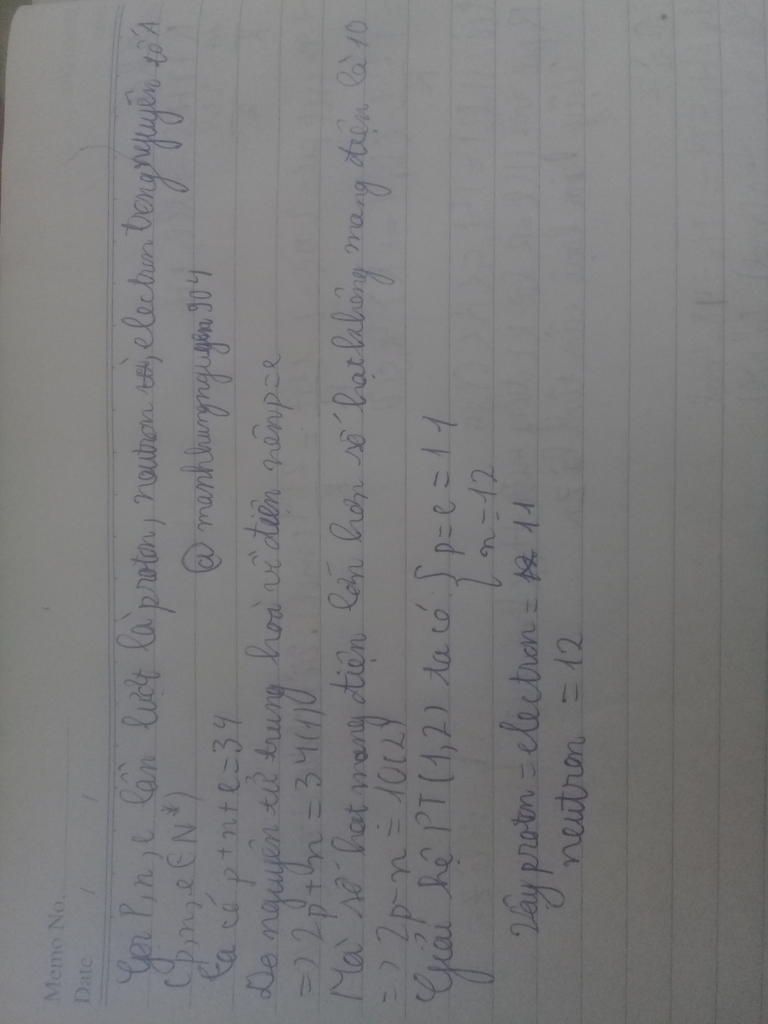 Memo No.
Date / /
Gọi P, n, e lần lượt là proton, neutron và, electron trong nguyên tố A
(p, n, e ∈ N*)
@manhhungnguyen904
Ta có p + n + e = 34
Do nguyên tử trung hoà về điện nên p = e
=> 2p + n = 34 (1)
Mà số hạt mang điện lớn hơn số hạt không mang điện là 10
=> 2p - n = 10 (2)
Giải hệ PT (1, 2) ta có { p = e = 11
n = 12
Vậy proton = electron = 11
neutron = 12